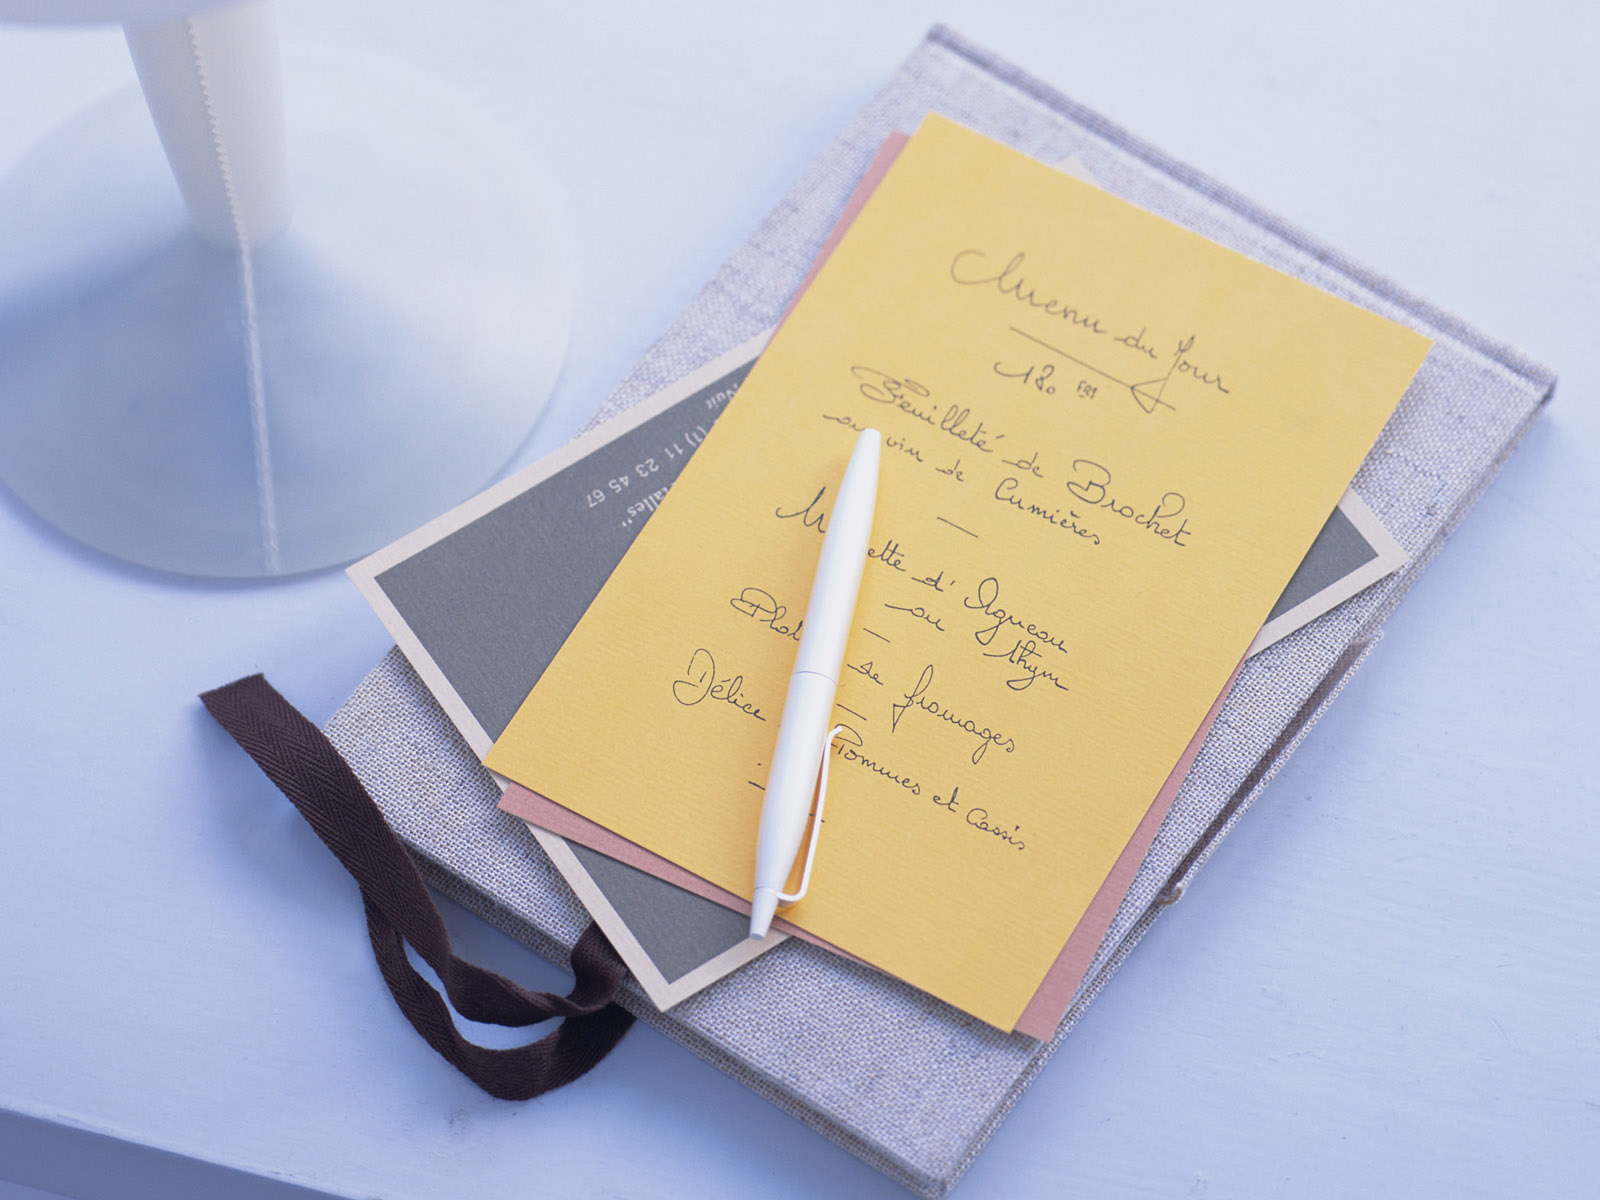 Menu du Jour
180 FRS
Feuilleté de Brochet
au vin de Cumières
d'Agneau
au thym
de fromages
Délice Pommes et Cassis
Nuit
(1) 11 23 45 67